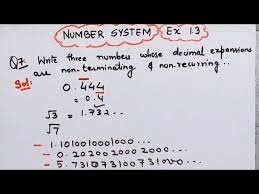 NUMBER SYSTEM Ex 1.3
Q7: Write three numbers whose decimal expansions
are non-terminating & non-recurring..
Sol:
0.444
= 0.4̅
√3 = 1.732...
√7
- 1.1010010001000...
- 0.202002000 2000...
- 5.7310731007310000...